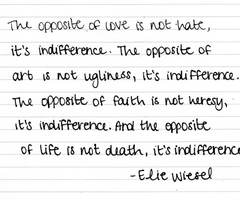 The opposite of love is not hate,
it's indifference. The opposite of
art is not ugliness, it's indifference.
The opposite of faith is not heresy,
it's indifference. And the opposite
of life is not death, it's indifference
-Elie Wiesel